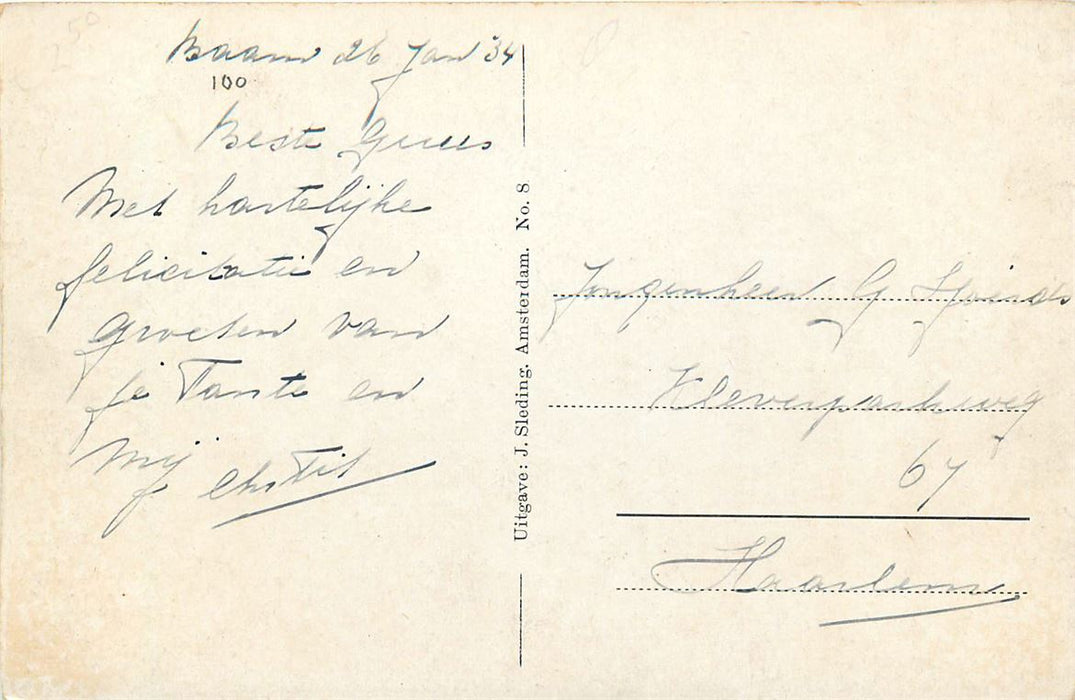 Baarn 26 Jan 34
100
Beste Guus
Met hartelijke
felicitatie en
groeten van
je Tante en
Mij
Uitgave: J. Sleding. Amsterdam. No. 8
Jongenheer G
Kleverparkweg
67
Haarlem
250